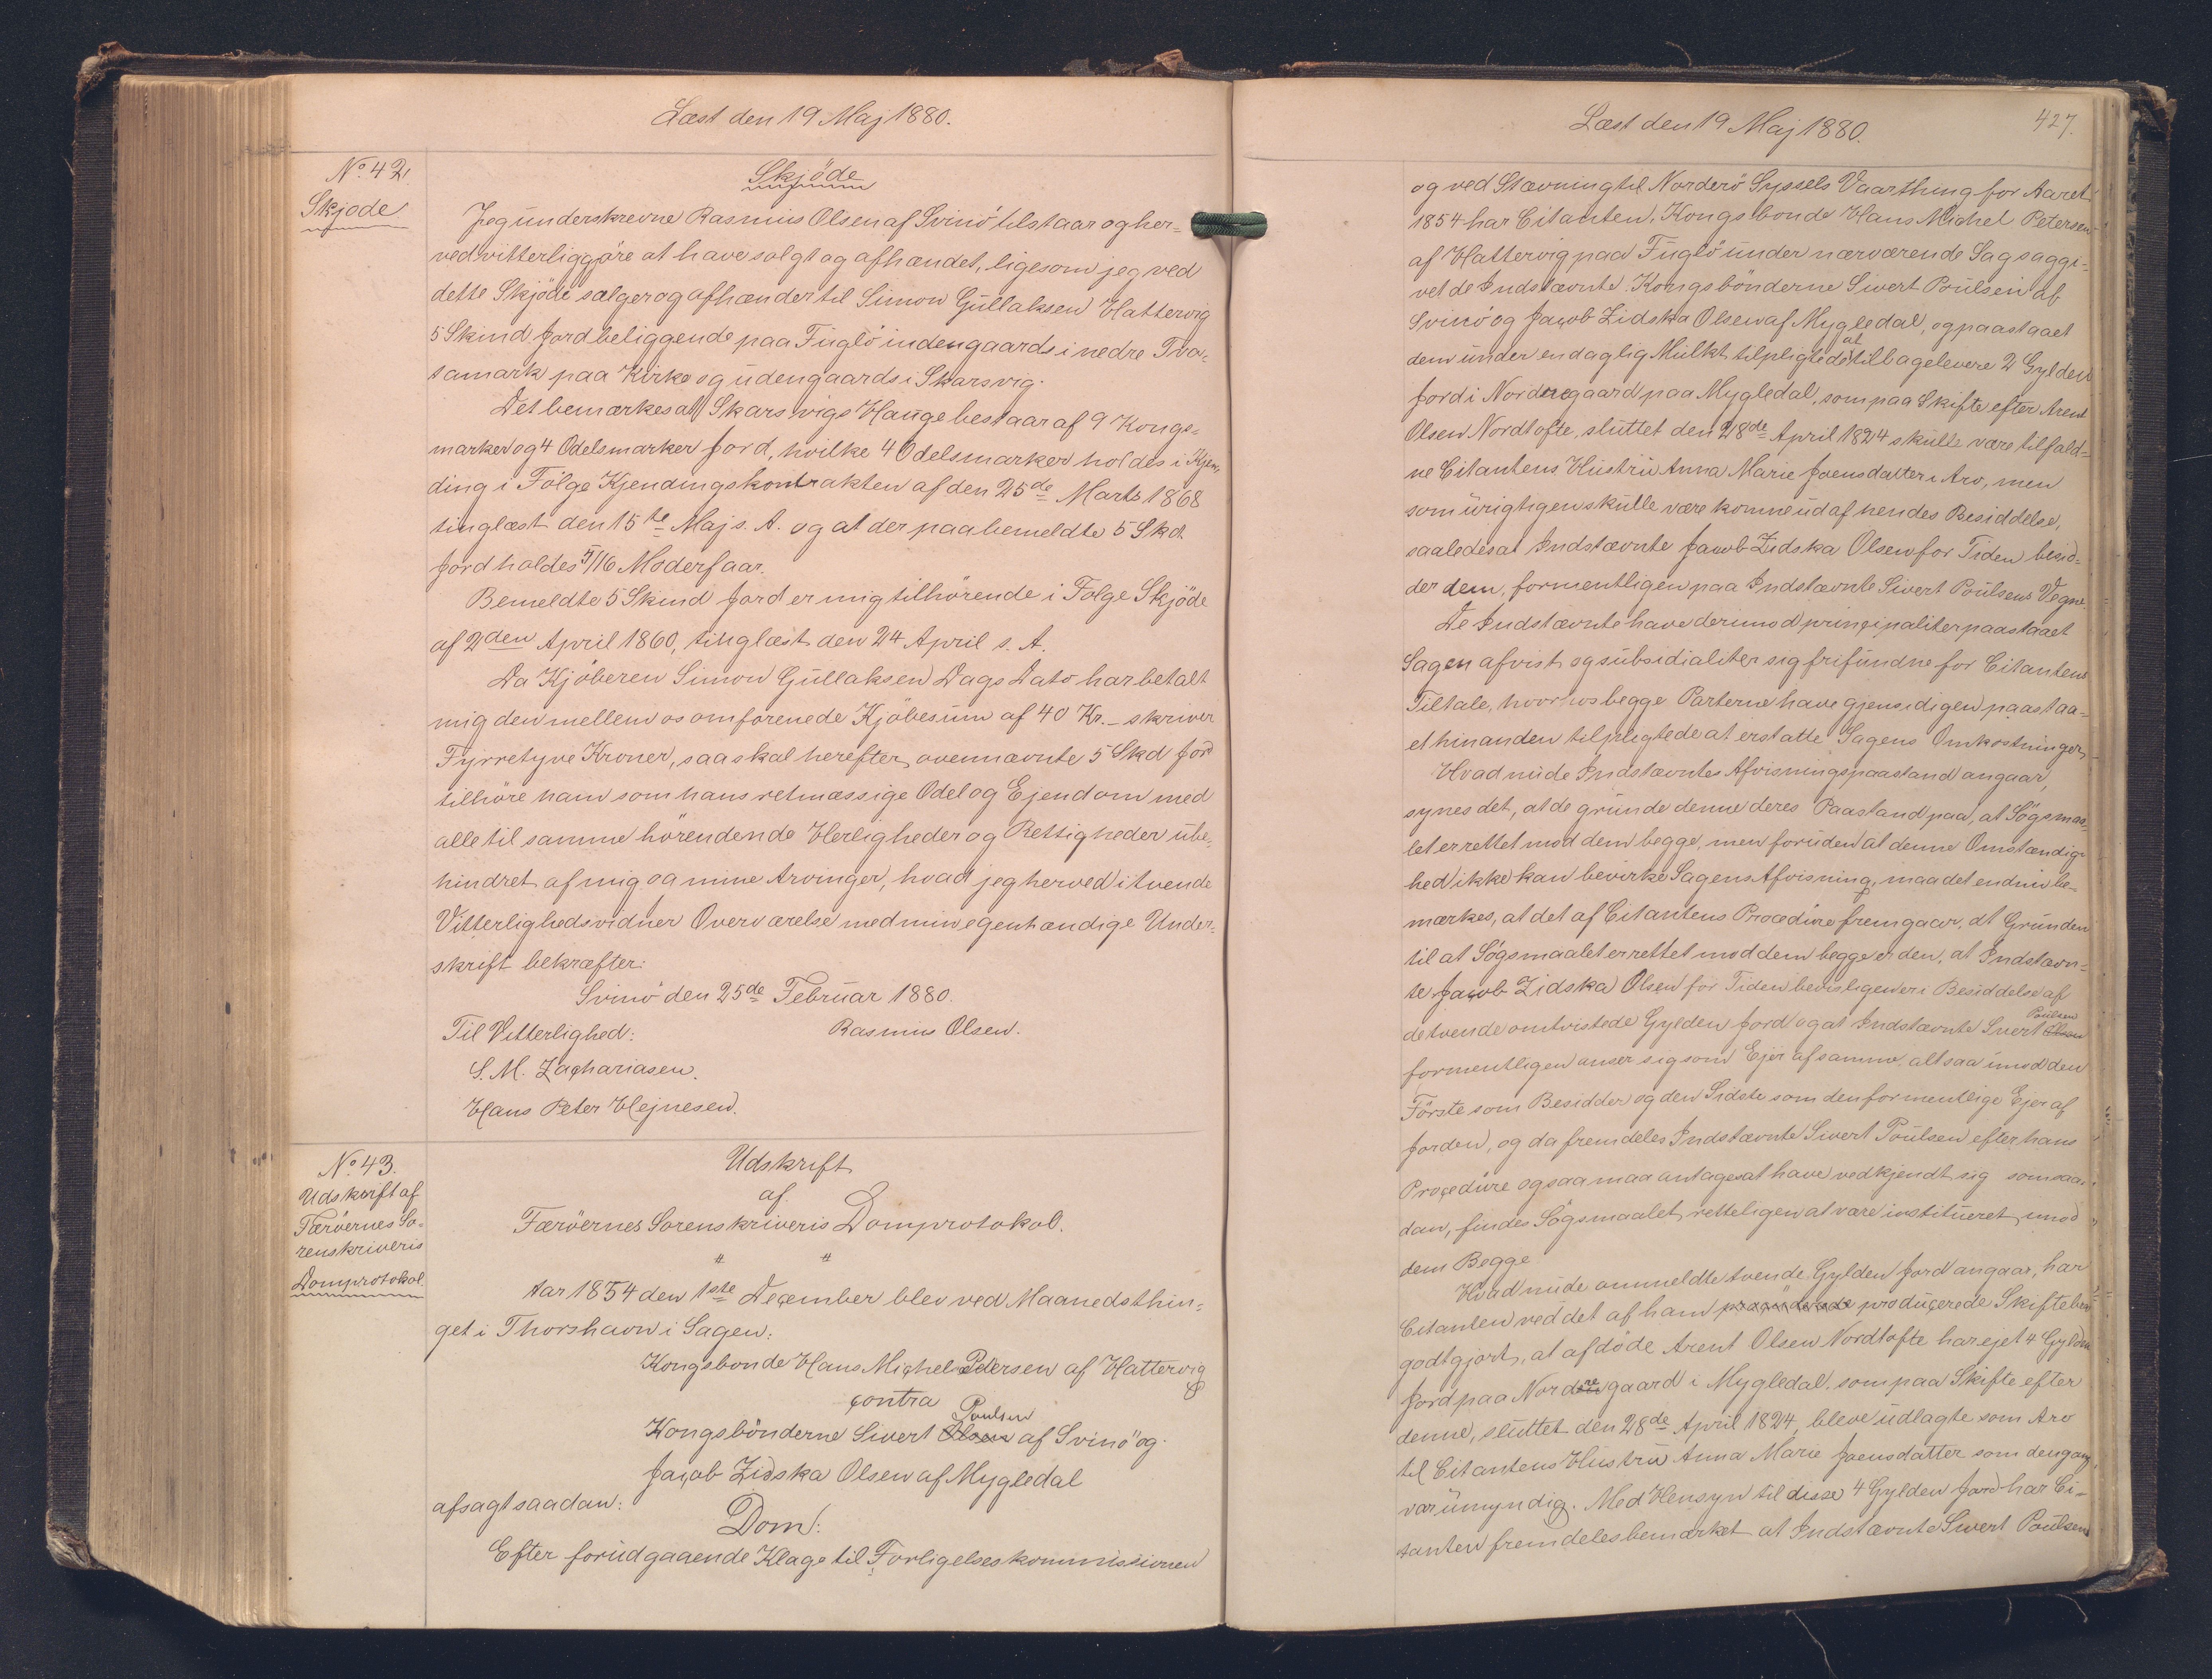 Læst den 19 Maj 1880.
No. 42.
Skjøde
Skjöde
Jeg underskrevne Rasmus Olsen af Svinö tilstaar og her=
ved vitterliggjöre at have solgt og afhændet, ligesom jeg ved
dette Skjöde sælger og afhænder til Simon Gullaksen Hattervig
5 Skind Jord beliggende paa Fuglö indengaards i nedre Tva=
samark paa Kirke og udengaards i Skarsvig.
Det bemærkes at Skarsvigs Hauge bestaar af 9 Kongs=
marker og 4 Odelsmarker Jord, hvilke 4 Odelsmarker holdes i Kjen=
ding i Fölge Kjendingskontrakten af den 25de Marts 1868
tinglæst den 15te Maj s. A. og at der paa bemeldte 5 Skd.
Jord holdes 5/16 Moderfaar.
Bemeldte 5 Skind Jord er mig tilhörende i Fölge Skjöde
af 2den April 1860, tinglæst den 24 April s. A.
Da Kjöberen Simon Gullaksen Dags Dato har betalt
mig den mellem os omforenede Kjöbesum af 40 Kr. – skriver
Fyrretyve Kroner, saa skal herefter ovennævnte 5 Skd Jord
tilhöre ham som hans retmæssige Odel og Ejendom med
alle til samme hörendende Herligheder og Rettigheder ube=
hindret af mig og mine Arvinger, hvad jeg herved i tvende
Vitterlighedsvidner Overværelse med min egenhændige Under=
skrift bekræfter.
Svinö den 25de Februar 1880.
Til Vitterlighed: Rasmus Olsen.
S. M. Zachariasen.
Hans Peter Hejnesen.
No. 43.
Udskrift af
Færöernes So=
renskriveris
Domprotokol.
Udskrift
af
Færöernes Sorenskriveris Domprotokol.
" "
Aar 1854 den 1ste December blev ved Maanedsthin=
get i Thorshavn i Sagen:
Kongsbonde Hans Michel Petersen af Hattervig
contra
Poulsen
Kongsbönderne Sivert Olsen af Svinö og
Jacob Zidska Olsen af Mygledal
afsagt saadan:
Dom:
Efter forudgaaende Klage til Forligelseskommissionen
Læst den 19 Maj 1880.
427.
og ved Stævning til Norderö Syssels Vaarthing for Aaret
1854 har Citanten, Kongsbonde Hans Michel Petersen
af Hattervig paa Fuglö under nærværende Sag saggi=
vet de Indstævnte Kongsbönderne Sivert Poulsen af
Svinö og Jacob Zidska Olsen af Mygledal, og paastaaet
dem under en daglig Mulkt tilpligtede at tilbagelevere 2 Gylden
Jord i Nordregaard paa Mygledal, som paa Skifte efter Arent
Olsen Nordtofte, sluttet den 28de April 1824 skulle være tilfald=
ne Citantens Hustru Anna Marie Joensdatter i Arv, men
som urigtigen skulle være komne ud af hendes Besiddelse,
saaledes at Indstævnte Jacob Zidska Olsen for Tiden besid=
der dem, formentligen paa Indstævnte Sivert Poulsens Vegne
De Indstævnte have derimod principaliter paastaaet
Sagen afvist og subsidialiter sig frifundne for Citantens
Tiltale, hvorhos begge Parterne have gjensidigen paastaa=
et hinanden tilpligtede at erstatte Sagens Omkostninger.
Hvad nu de Indstævntes Afvisningspaastand angaar,
synes det, at de grunde denne deres Paastand paa, at Sögsmaa=
let er rettet mod dem begge, men foruden at denne Omstændig=
hed ikke kan bevirke Sagens Afvisning, maa det endnu be=
mærkes, at det af Citantens Procedure fremgaar, at Grunden
til at Sögsmaalet er rettet mod dem begge er den, at Indstævn=
te Jacob Zidska Olsen for Tiden bevisligen er i Besiddelse af
Poulsen
de tvende omtvistede Gylden Jord og at Indstævnte Sivert Olsen
formentligen anser sig som Ejer af samme, altsaa imod den
Förste som Besidder og den Sidste som den formentlige Ejer af
Jorden, og da fremdeles Indstævnte Sivert Poulsen efter hans
Procedure ogsaa maa antages at have vedkjendt sig som saa=
dan, findes Sögsmaalet retteligen at være institueret imod
dem Begge
Hvad nu de ommeldte tvende Gylden Jord angaar, har
Citanten ved det af ham producerede Skiftebrev
godtgjort, at afdöde Arent Olsen Nordtofte har ejet 4 Gylden
Jord paa Nordregaard i Mygledal, som paa Skifte efter
denne, sluttet den 28de April 1824, bleve udlagte som Arv
til Citantens Hustru Anna Marie Joensdatter som dengang
var umyndig. Med Hensyn til disse 4 Gylden Jord har Ci=
tanten fremdeles bemærket at Indstævnte Sivert Poulsen